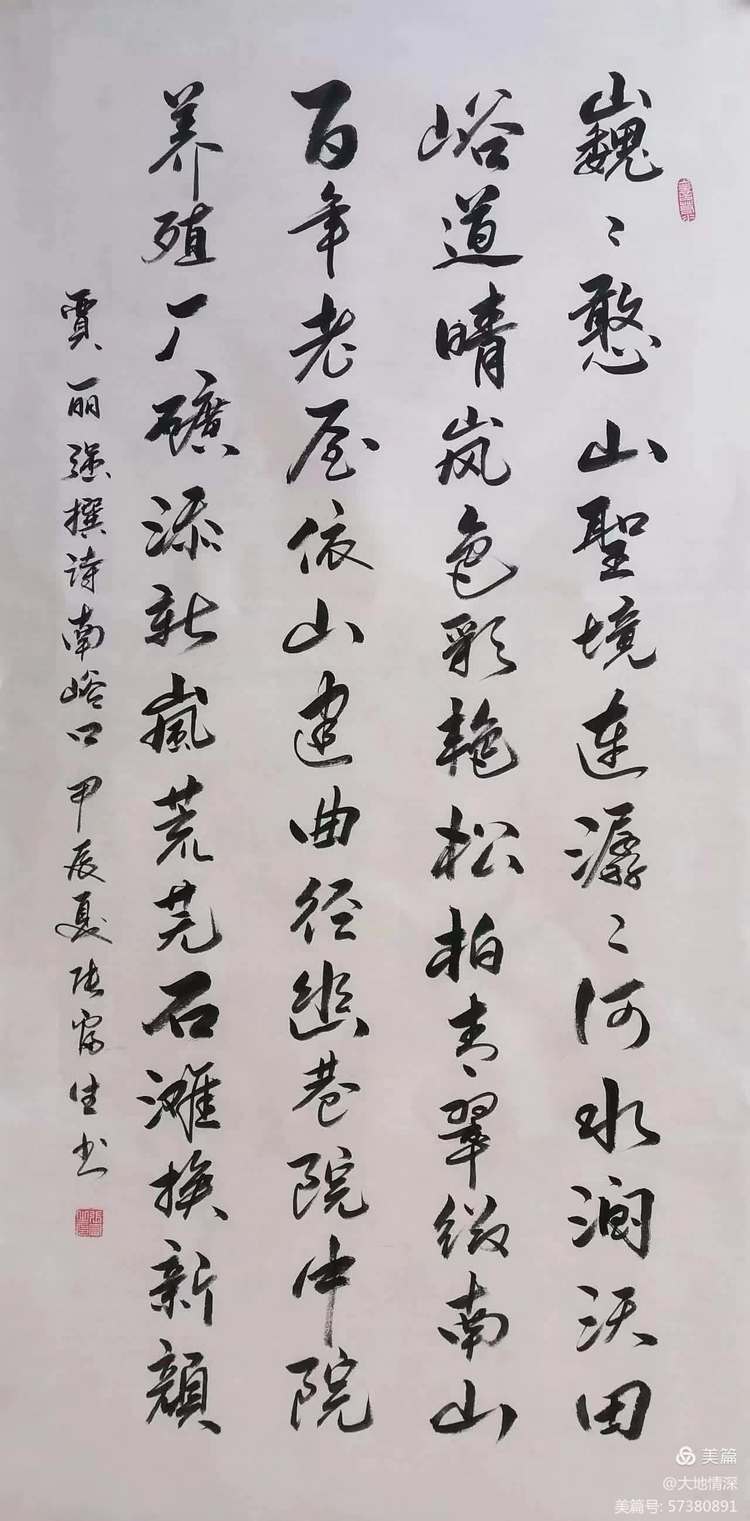 巍々憨山聖境连潺々河水潤沃田
峪道晴岚色彩艳松柏青翠缀南山
百年老屋依山建曲径幽巷院中院
养殖厂礦添新嵐荒芜石滩换新顔
賈丽强撰诗南峪口甲辰夏张富生书
美篇
@大地情深
美篇号: 57380891